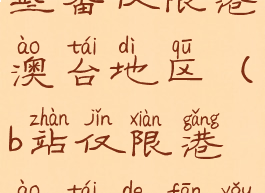 蓝番仅限港
ào tái dì qū
澳台地区（
zhàn jǐn xiàn gǎng
b站仅限港
ào tái de fān yǒu